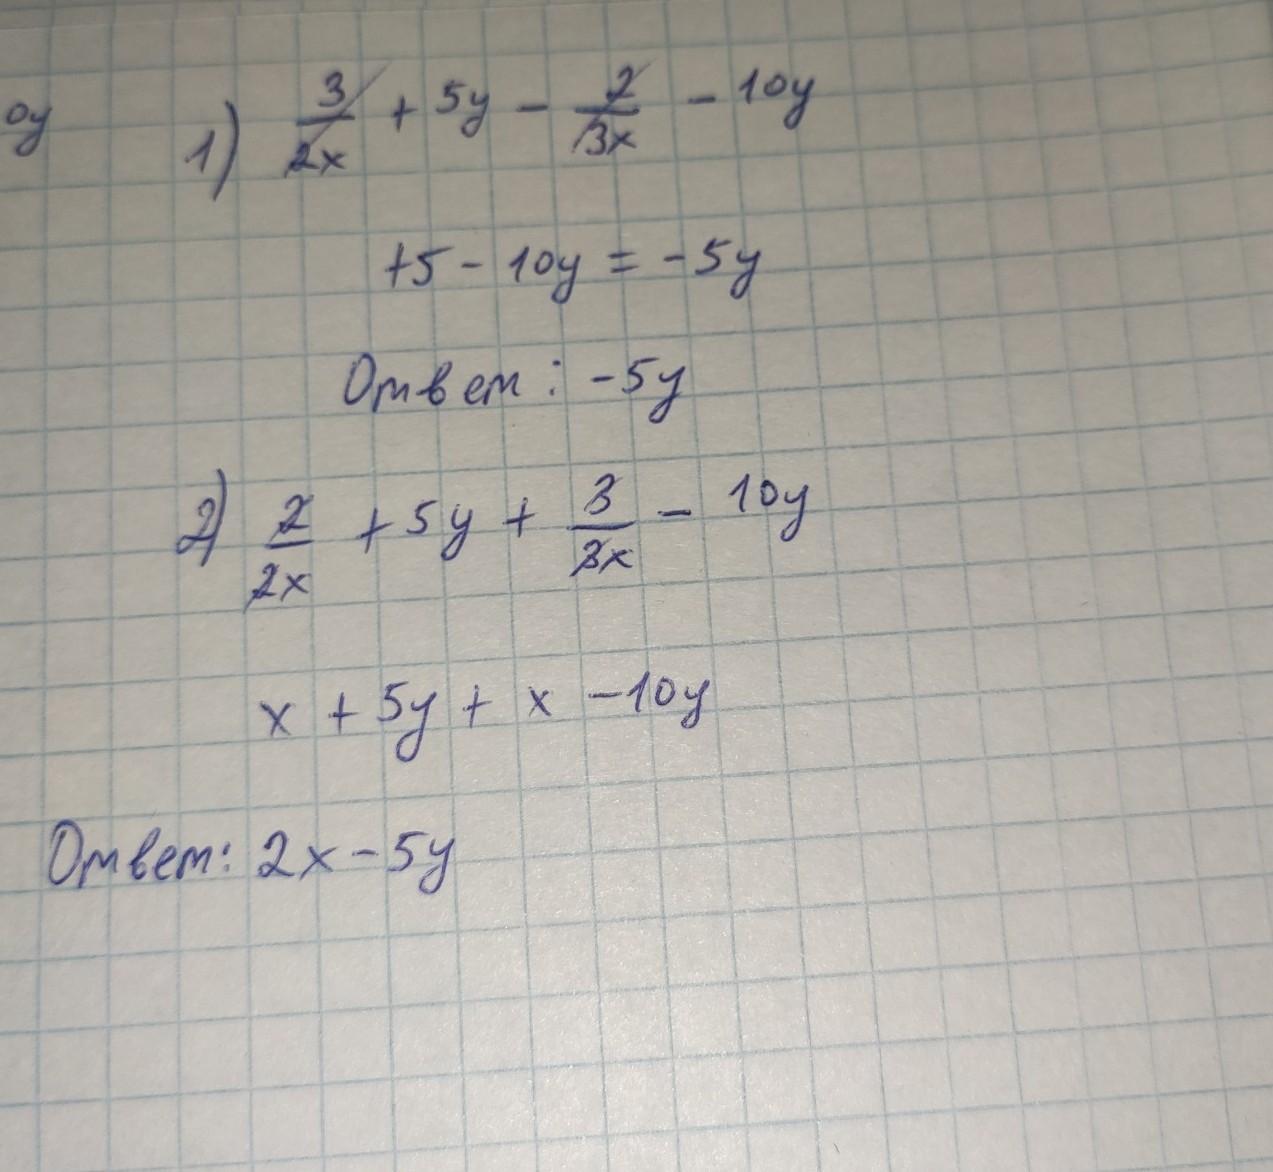 0y
1) 3/2x + 5y - 2/3x - 10y
+5 - 10y = -5y
Ответ: -5y
2) 2/2x + 5y + 3/3x - 10y
x + 5y + x - 10y
Ответ: 2x - 5y